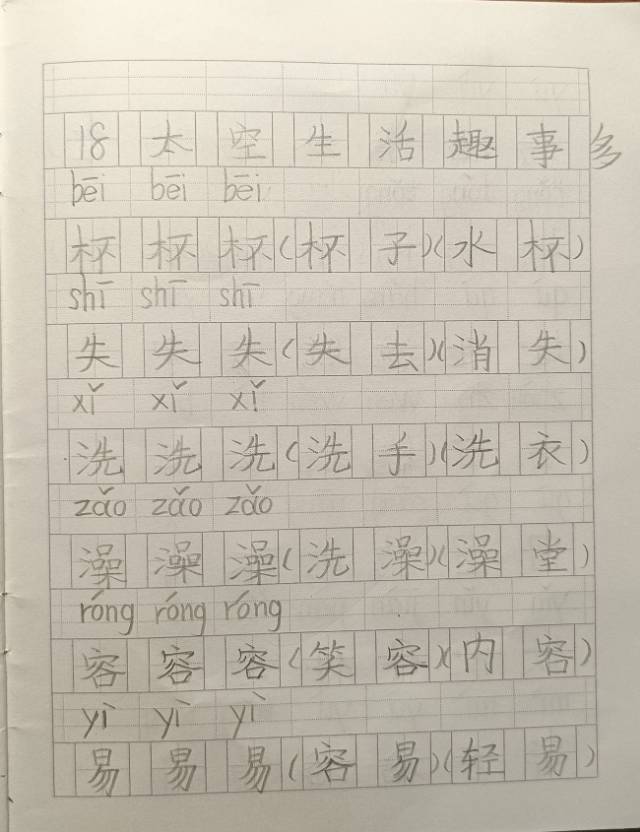 18 太空生活趣事多
bēi bēi bēi
杯 杯 杯(杯子)(水杯)
shī shī shī
失 失 失(失去)(消失)
xǐ xǐ xǐ
洗 洗 洗(洗手)(洗衣)
zǎo zǎo zǎo
澡 澡 澡(洗澡)(澡堂)
róng róng róng
容 容 容(笑容)(内容)
yì yì yì
易 易 易(容易)(轻易)